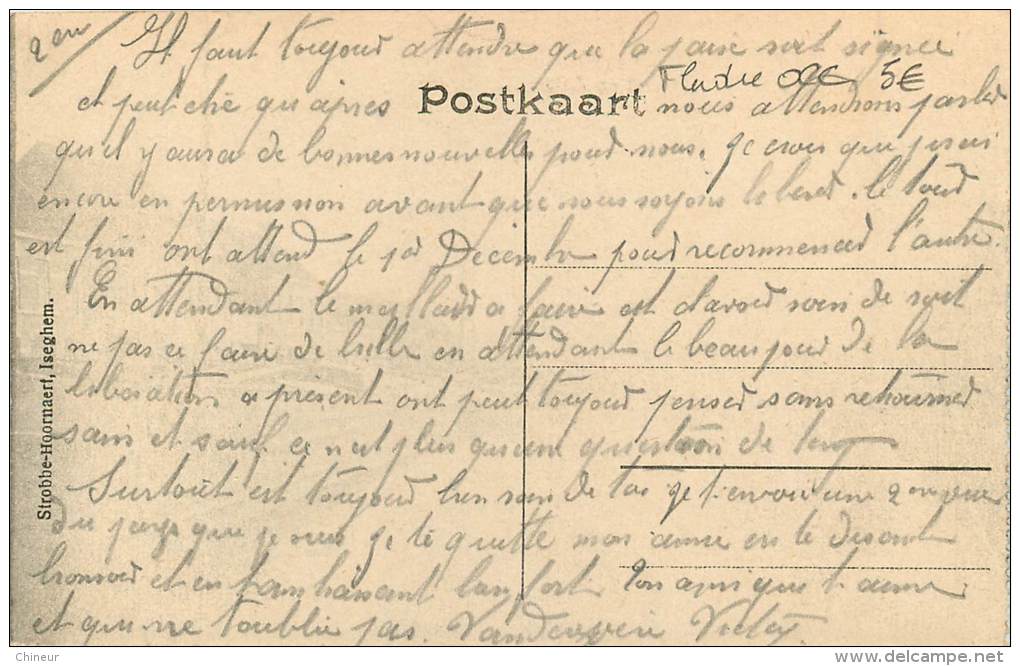 2eu
Il faut toujour attendre que la paix soit signée
Flandre 5€
et peut etre qu'apres Postkaart nous attendrons parler
qu'il y aura de bonnes nouvelles pour nous. Je crois que j'irai
encore en permission avant que nous soyions liberer. le tour
est fini ont attend le 1er Decembre pour recommencer l'autre.
En attendant le meilleur a faire est d'avoir soin de soit
ne pas ce faire de bille en attendant le beau jour de la
liberation a present ont peut toujour penser sans retourner
sain et sauf ce n'est plus qu'une question de temp
Surtout est toujour bien soin de toi je t'envoi une 2em vue
du pays que je suis je te quitte mon amie en te disant
bonsoir et en t'embrassant bien fort Ton ami que t'aime
et qui ne t'oublie pas. Vandevyvere Victor
Strobbe-Hoornaert, Iseghem.
Chineur
www.delcampe.net